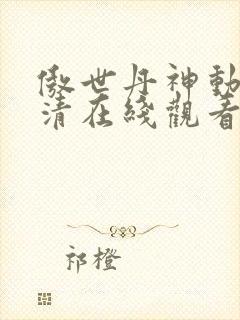 傲世丹神動
清在綫觀看
祁橙